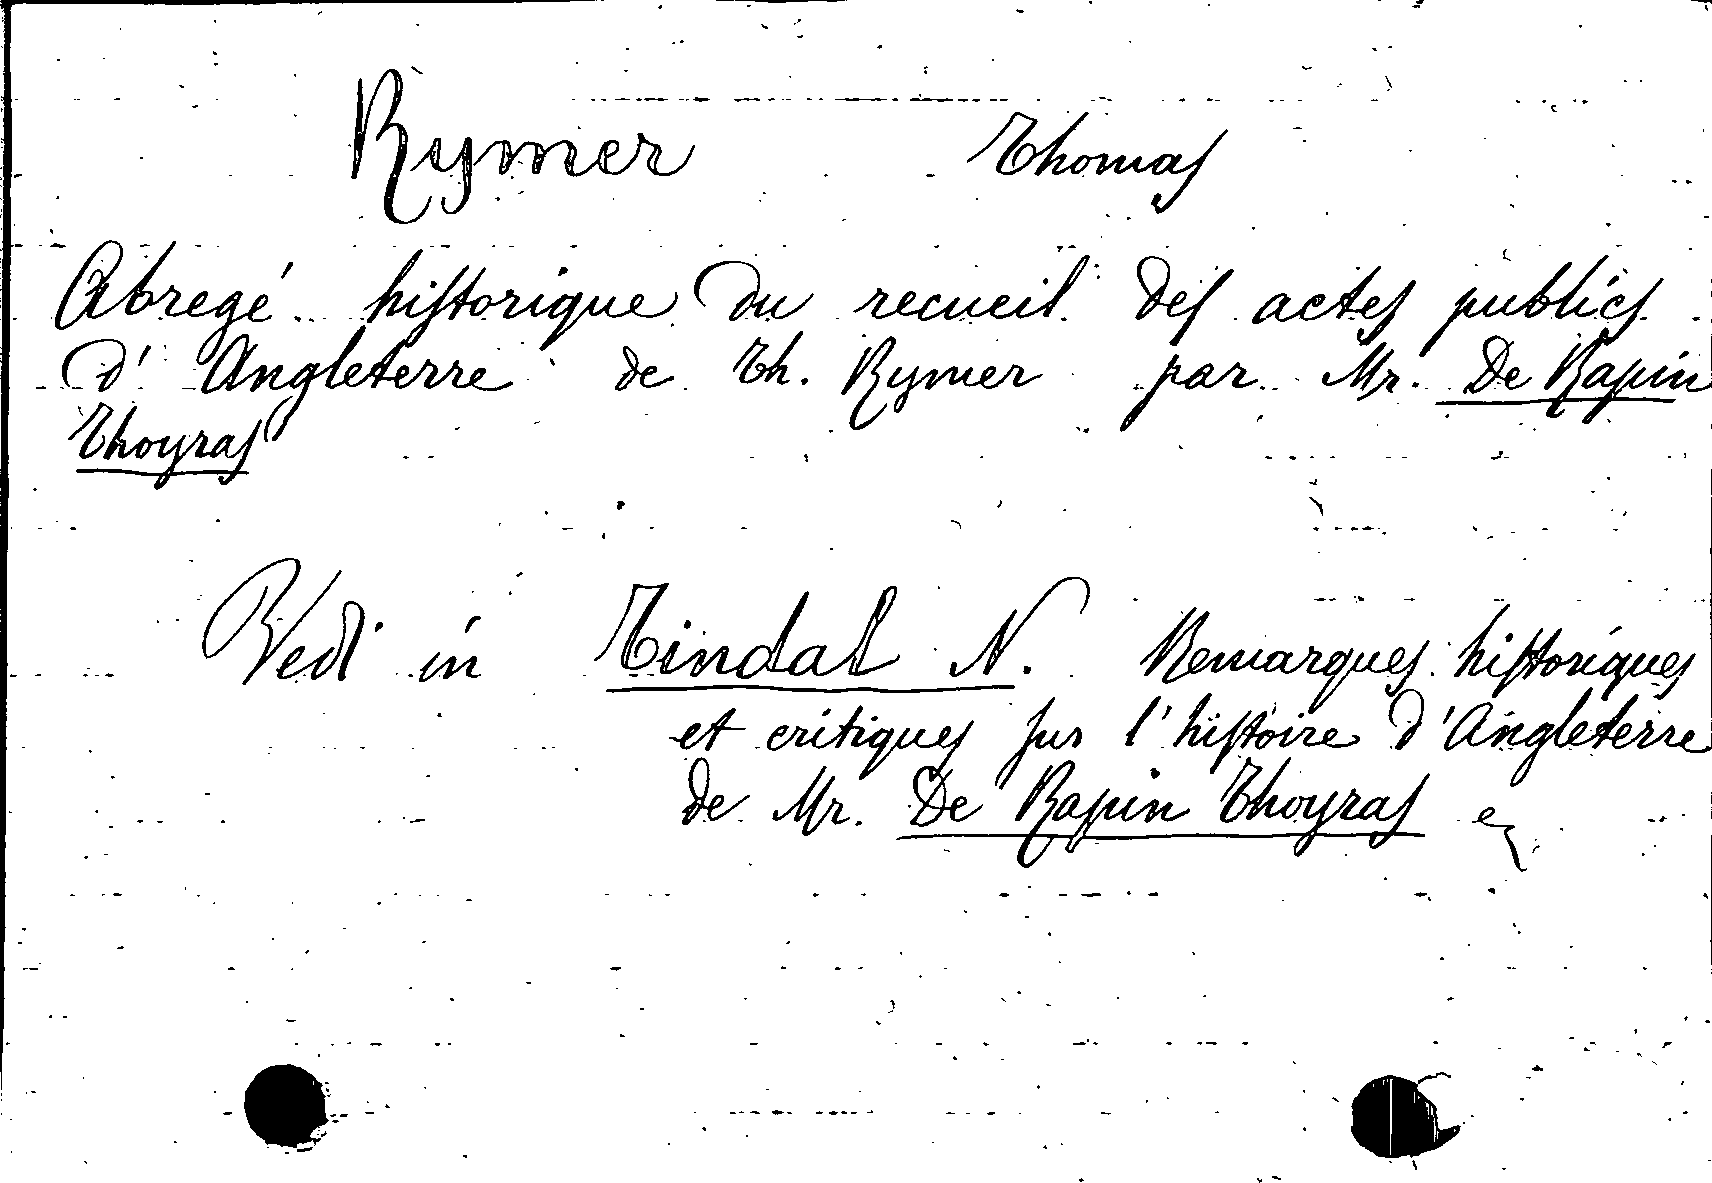 Rymer Thomas
Abregé historique du recueil des actes publics
d'Angleterre de Th. Rymer par Mr. De Rapin
Thoyras
Vedi in Tindal N. Remarques historiques
et critiques sur l'histoire d'Angleterre
de Mr. De Rapin Thoyras